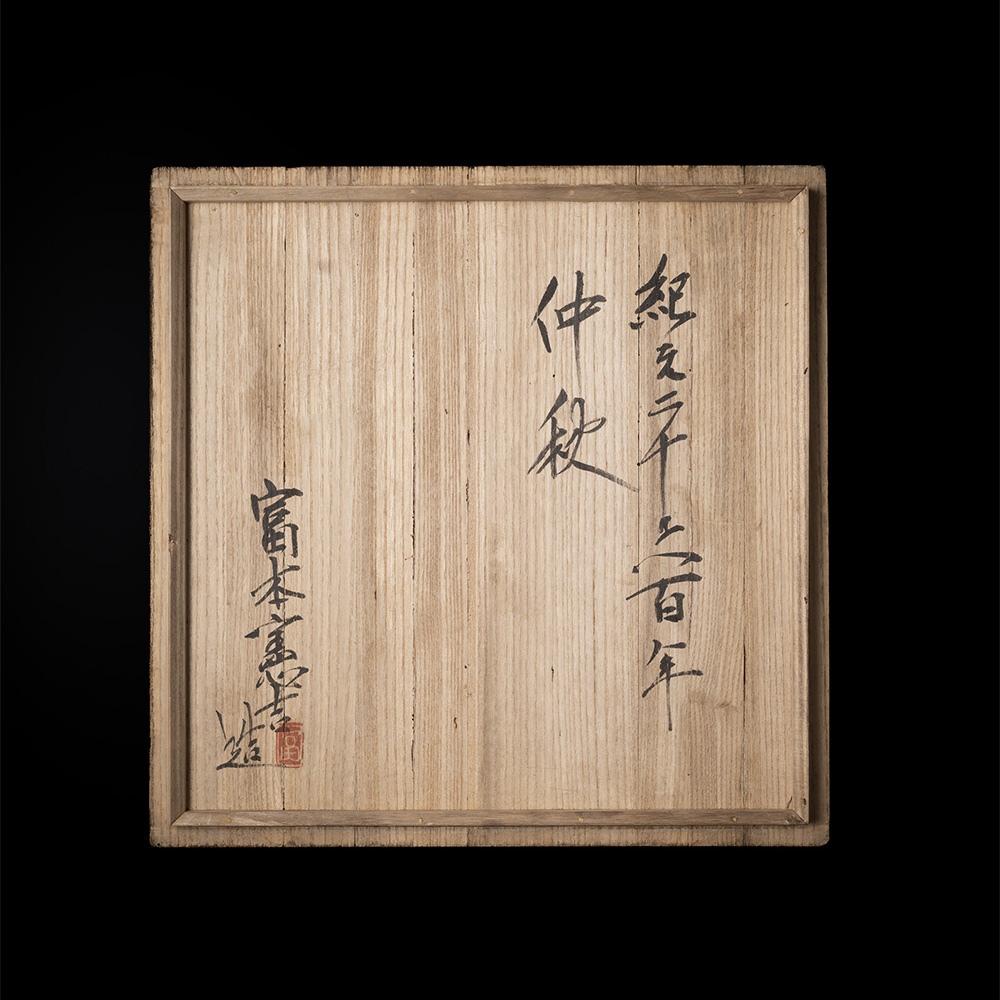 紀元二千六百年
仲秋
富本憲吉造
富